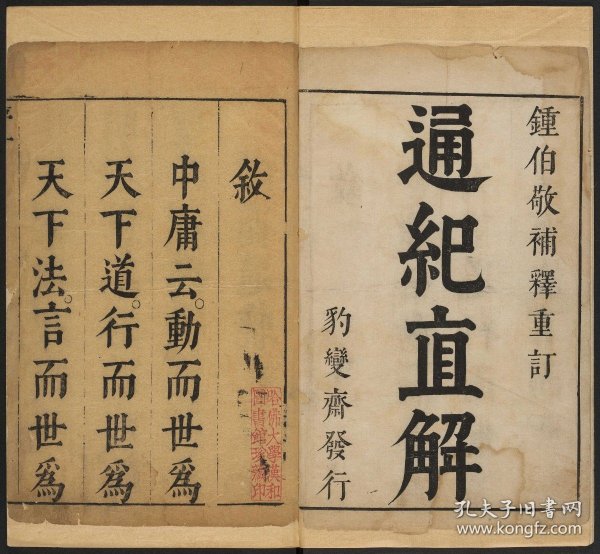 鍾伯敬補釋重訂
通紀直解
豹變齋發行
敘
中庸云。動而世爲
天下道。行而世爲
天下法。言而世爲
哈佛大學漢和
圖書館珍藏印
孔夫子旧书网
www.kongfz.com